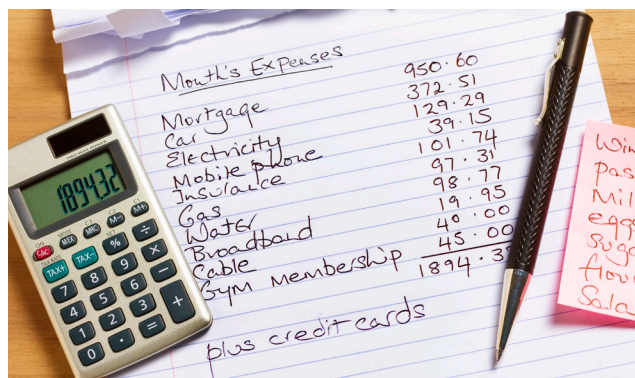 Month's Expenses
Mortgage 950.60
Car 372.51
Electricity 129.29
Mobile phone 39.15
Insurance 101.74
Gas 97.31
Water 98.77
Broadband 19.95
Cable 40.00
Gym Membership 45.00
1894.3
plus credit cards
1894.32
MRC M- M+
TAX+ TAX- % ÷
7 8 9 ×
4 5 6 -
1 2 3 +
0 . =
Win
pas
Mil
eggs
suga
flou
Sala